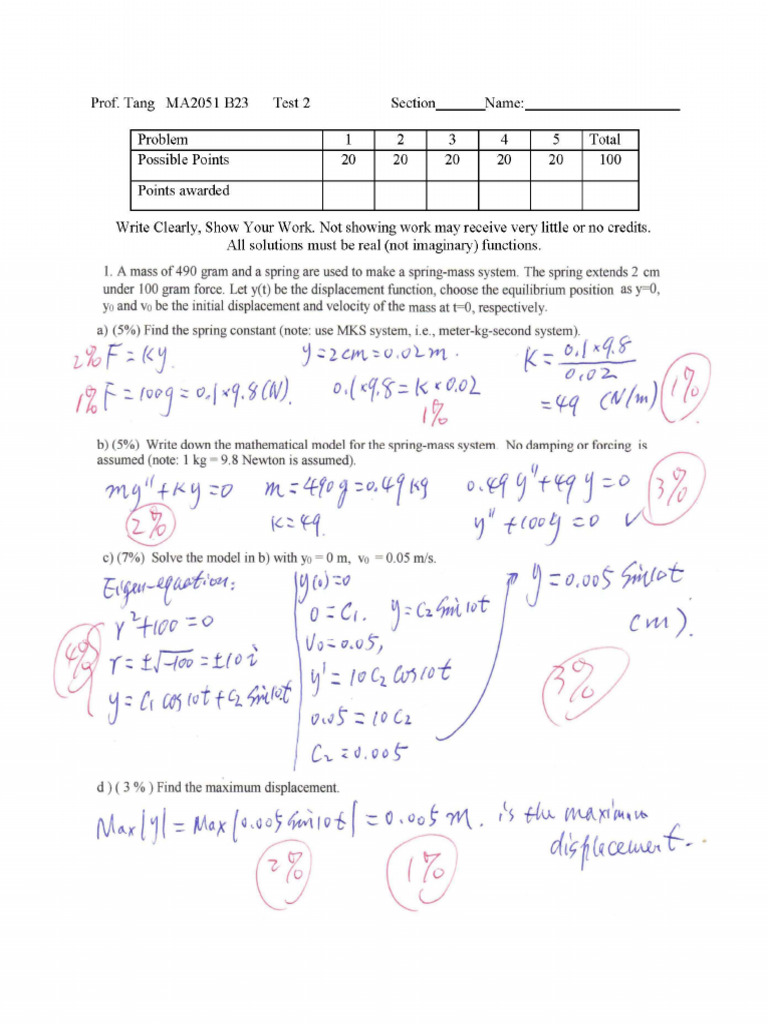 Prof. Tang MA2051 B23 Test 2 Section______Name:____________________
Problem 1 2 3 4 5 Total
Possible Points 20 20 20 20 20 100
Points awarded
Write Clearly, Show Your Work. Not showing work may receive very little or no credits.
All solutions must be real (not imaginary) functions.
1. A mass of 490 gram and a spring are used to make a spring-mass system. The spring extends 2 cm
under 100 gram force. Let y(t) be the displacement function, choose the equilibrium position as y=0,
y₀ and v₀ be the initial displacement and velocity of the mass at t=0, respectively.
a) (5%) Find the spring constant (note: use MKS system, i.e., meter-kg-second system).
2% F = Ky. y = 2cm = 0.02 m. K = 0.1×9.8 / 0.02
1% F = 100g = 0.1×9.8 (N). 0.1×9.8 = K×0.02 = 49 (N/m) 1%
1%
b) (5%) Write down the mathematical model for the spring-mass system. No damping or forcing is
assumed (note: 1 kg = 9.8 Newton is assumed).
my'' + Ky = 0 m = 490g = 0.49 kg 0.49 y'' + 49 y = 0 3%
2% K = 49. y'' + 100y = 0 ✓
c) (7%) Solve the model in b) with y₀ = 0 m, v₀ = 0.05 m/s.
Eigen-equation:
r² + 100 = 0
r = ±√-100 = ±10 i
y = C₁ cos10t + C₂ Sin10t
4%
y(0) = 0
0 = C₁. y = C₂ Sin10t
V₀ = 0.05,
y' = 10 C₂ Cos10t
0.05 = 10 C₂
C₂ = 0.005
y = 0.005 Sin10t
(m).
3%
d ) ( 3 % ) Find the maximum displacement.
Max|y| = Max|0.005 Sin10t| = 0.005 m. is the maximum
displacement.
2% 1%